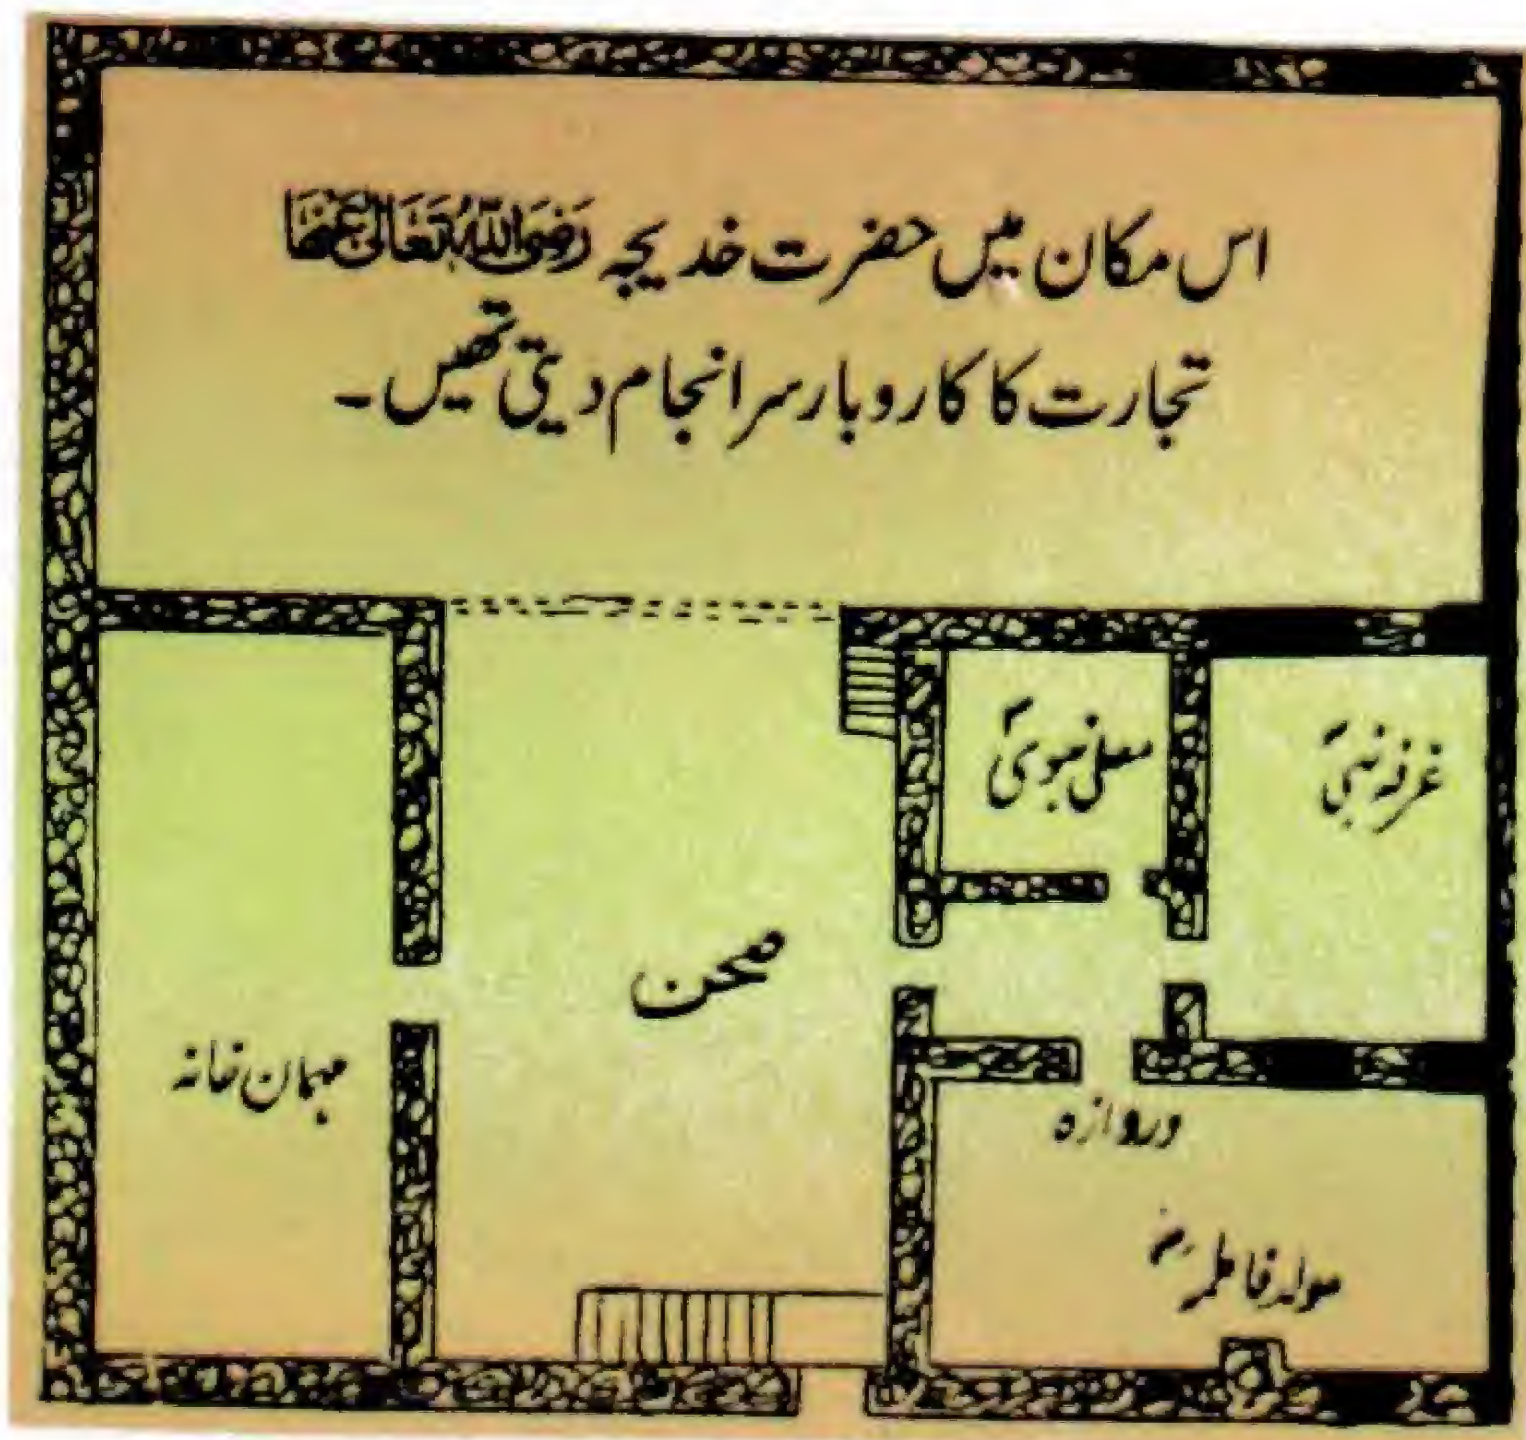 اس مکان میں حضرت خدیجہ رَضِیَ اللّٰہُ تَعَالٰی عَنْہَا
تجارت کا کاروبار سرانجام دیتی تھیں۔
مصلی نبویؐ
غرفہ نبیؐ
صحن
مہمان خانہ
دروازہ
مولد فاطمہؓ